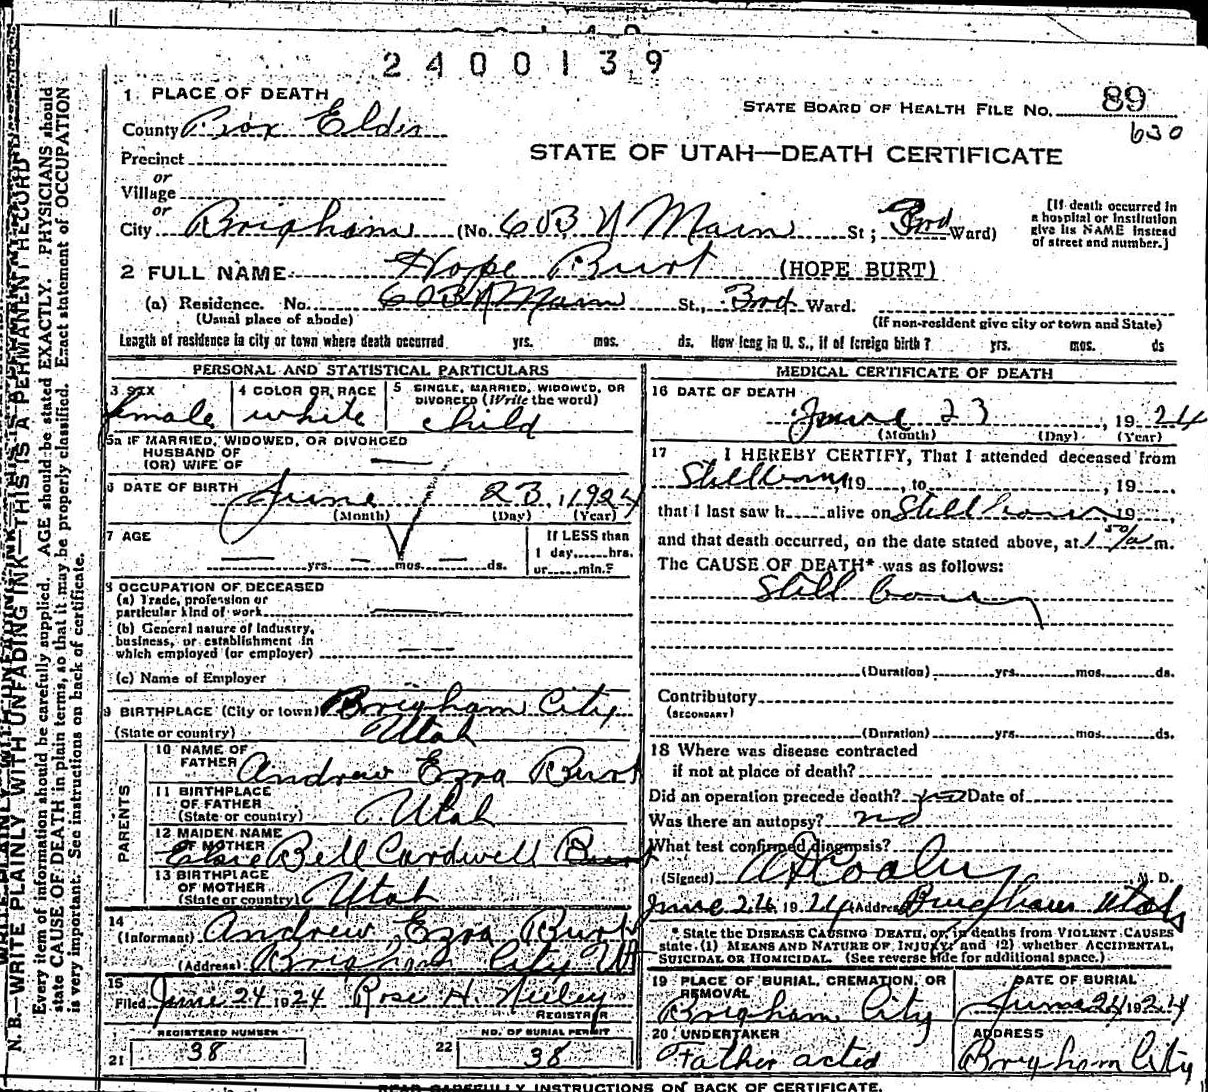 2400139
1 PLACE OF DEATH
STATE BOARD OF HEALTH FILE No. 89
County Box Elder
630
Precinct
STATE OF UTAH—DEATH CERTIFICATE
or
Village
or
City Brigham (No. 603 N Main St; 3rd Ward)
[If death occurred in
a hospital or institution
give its NAME instead
of street and number.]
2 FULL NAME Hope Burt (HOPE BURT)
(a) Residence. No. 603 N Main St., 3rd Ward.
(Usual place of abode)
(If non-resident give city or town and State)
Length of residence in city or town where death occurred yrs. mos. ds. How long in U. S., if of foreign birth? yrs. mos. ds
PERSONAL AND STATISTICAL PARTICULARS
3 SEX
female
4 COLOR OR RACE
white
5 SINGLE, MARRIED, WIDOWED, OR
DIVORCED (Write the word)
child
5a IF MARRIED, WIDOWED, OR DIVORCED
HUSBAND OF
(OR) WIFE OF
6 DATE OF BIRTH June 23, 1924
(Month) (Day) (Year)
7 AGE
yrs. mos. ds.
If LESS than
1 day, hrs.
or min.?
8 OCCUPATION OF DECEASED
(a) Trade, profession or
particular kind of work
(b) General nature of Industry,
business, or establishment in
which employed (or employer)
(c) Name of Employer
9 BIRTHPLACE (City or town) Brigham City
(State or country) Utah
PARENTS
10 NAME OF
FATHER Andrew Ezra Burt
11 BIRTHPLACE
OF FATHER
(State or country) Utah
12 MAIDEN NAME
OF MOTHER
Elsie Bell Cardwell Burt
13 BIRTHPLACE
OF MOTHER
(State or country) Utah
14
(Informant) Andrew Ezra Burt
(Address) Brigham City Ut
15
Filed June 24 1924 Rose H. Neeley
REGISTRAR
REGISTERED NUMBER
21 38
NO. OF BURIAL PERMIT
22 38
MEDICAL CERTIFICATE OF DEATH
16 DATE OF DEATH
June 23, 1924
(Month) (Day) (Year)
17 I HEREBY CERTIFY, That I attended deceased from
Stillborn, 19 , to , 19
that I last saw h alive on Stillborn, 19 ,
and that death occurred, on the date stated above, at 1 50/a m.
The CAUSE OF DEATH* was as follows:
Still born
(Duration) yrs. mos. ds.
Contributory
(SECONDARY)
(Duration) yrs. mos. ds.
18 Where was disease contracted
if not at place of death?
Did an operation precede death? Date of
Was there an autopsy? no
What test confirmed diagnosis?
(Signed) M. D.
June 24, 1924 (Address) Brigham Utah
* State the DISEASE CAUSING DEATH, or, in deaths from VIOLENT CAUSES
state (1) MEANS AND NATURE OF INJURY; and (2) whether ACCIDENTAL,
SUICIDAL OR HOMICIDAL. (See reverse side for additional space.)
19 PLACE OF BURIAL, CREMATION, OR
REMOVAL
Brigham City
DATE OF BURIAL
June 24 1924
20 UNDERTAKER
Father acted
ADDRESS
Brigham City
READ CAREFULLY INSTRUCTIONS ON BACK OF CERTIFICATE.
N. B.—WRITE PLAINLY WITH UNFADING INK—THIS IS A PERMANENT RECORD
Every item of information should be carefully supplied. AGE should be stated EXACTLY. PHYSICIANS should
state CAUSE OF DEATH in plain terms, so that it may be properly classified. Exact statement of OCCUPATION
is very important. See instructions on back of certificate.